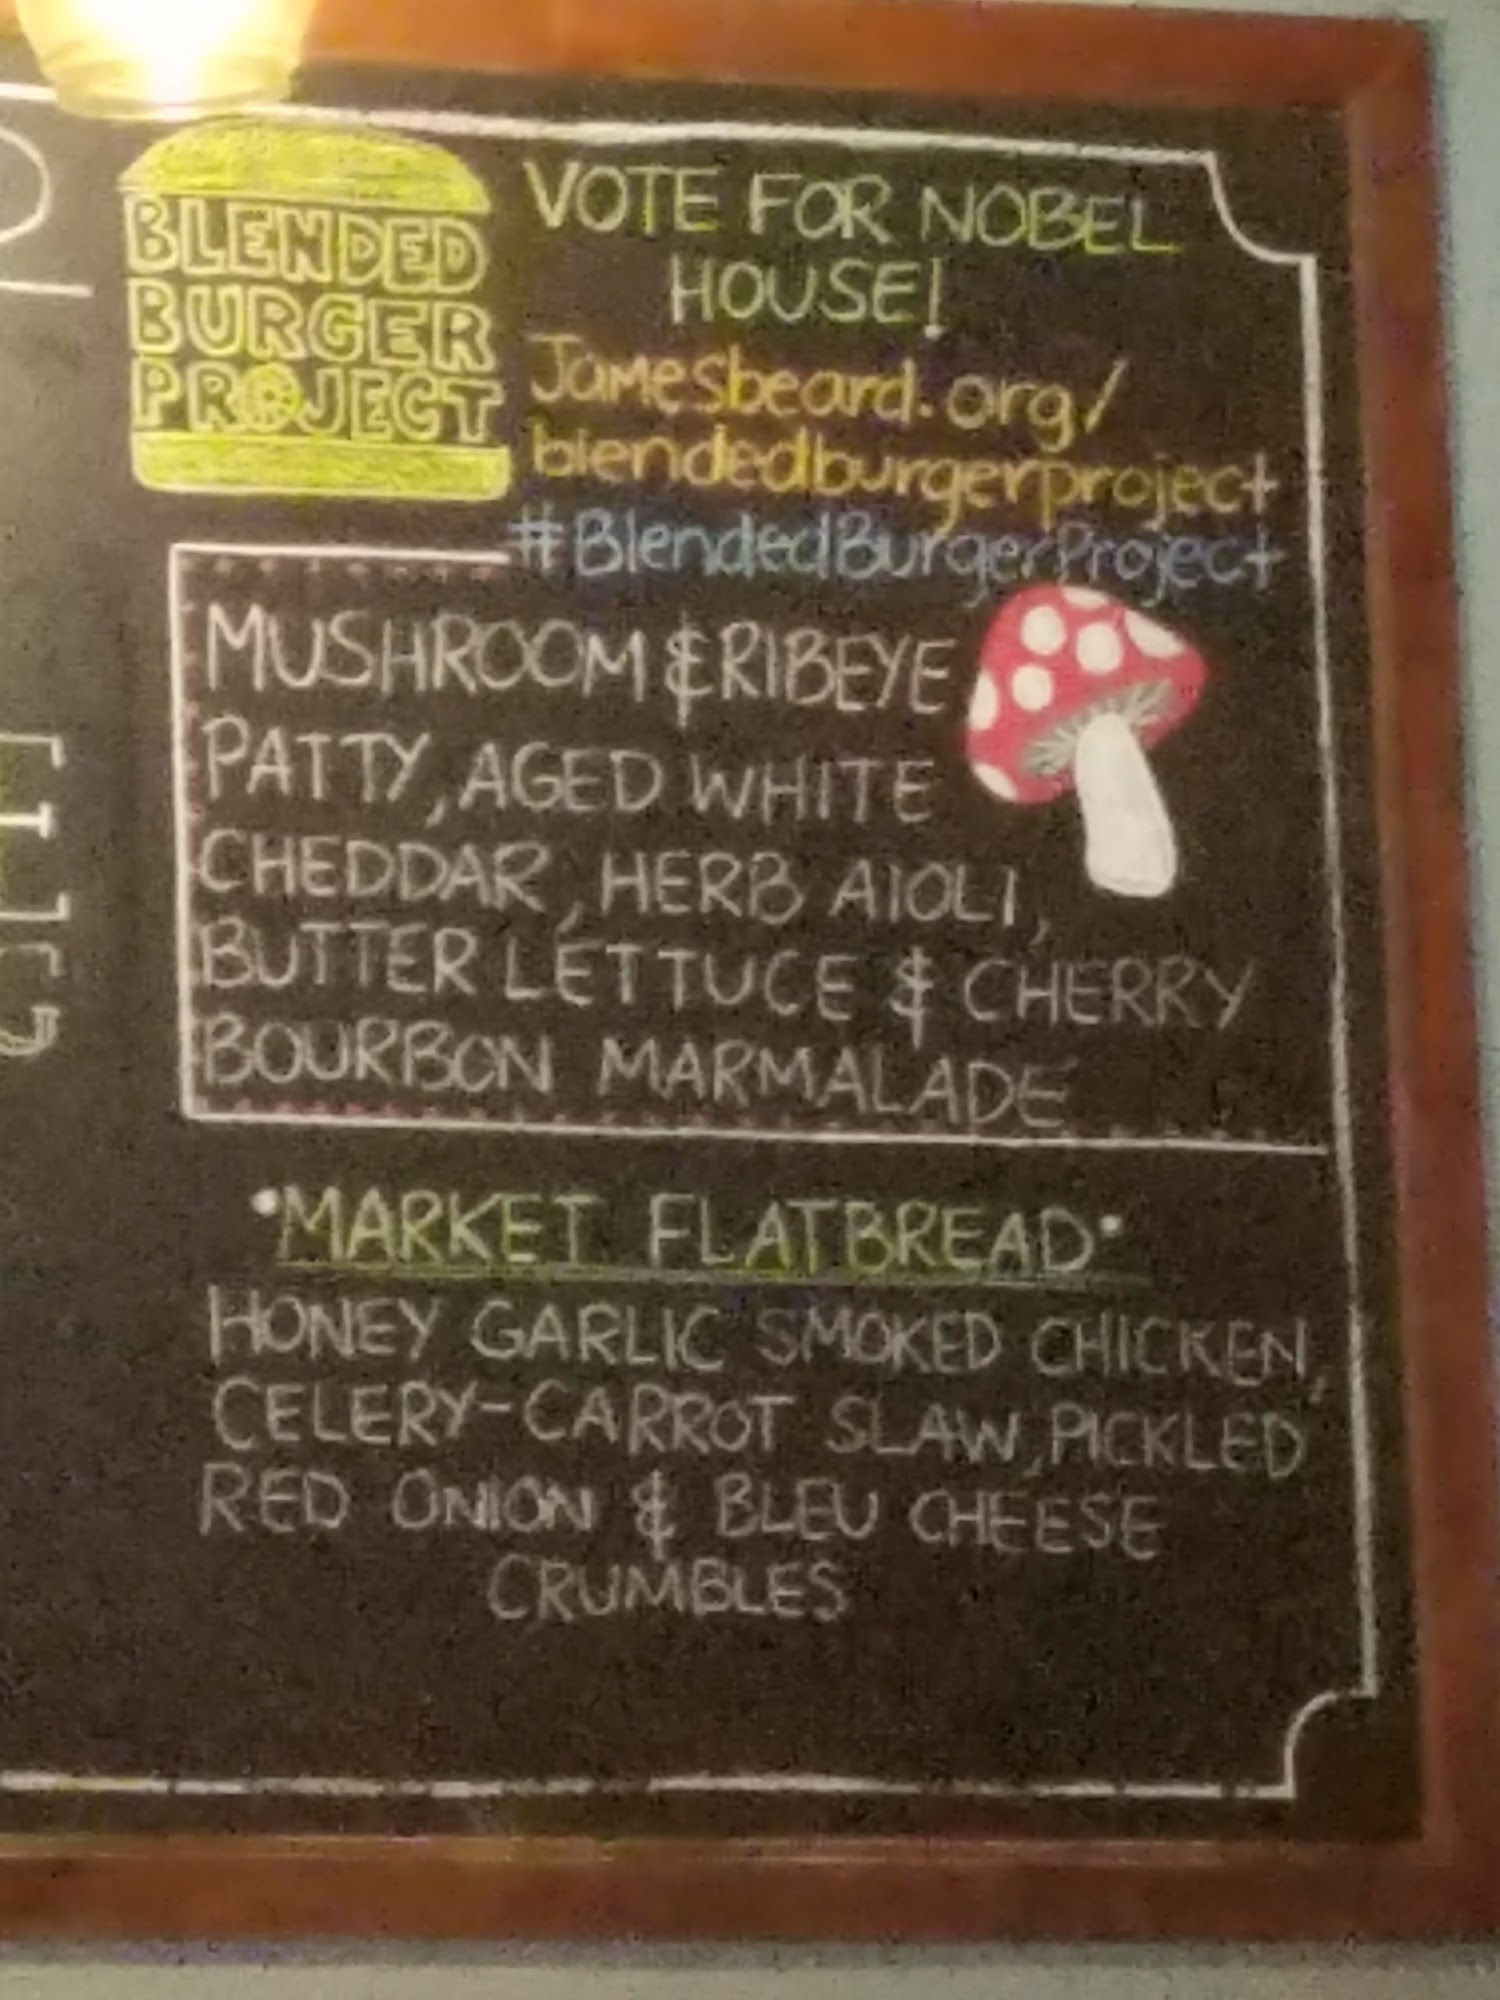 BLENDED
BURGER
PROJECT
VOTE FOR NOBEL
HOUSE!
Jamesbeard.org/
blendedburgerproject
#BlendedBurgerProject
MUSHROOM & RIBEYE
PATTY, AGED WHITE
CHEDDAR, HERB AIOLI,
BUTTER LETTUCE & CHERRY
BOURBON MARMALADE
•MARKET FLATBREAD•
HONEY GARLIC SMOKED CHICKEN,
CELERY-CARROT SLAW, PICKLED
RED ONION & BLEU CHEESE
CRUMBLES